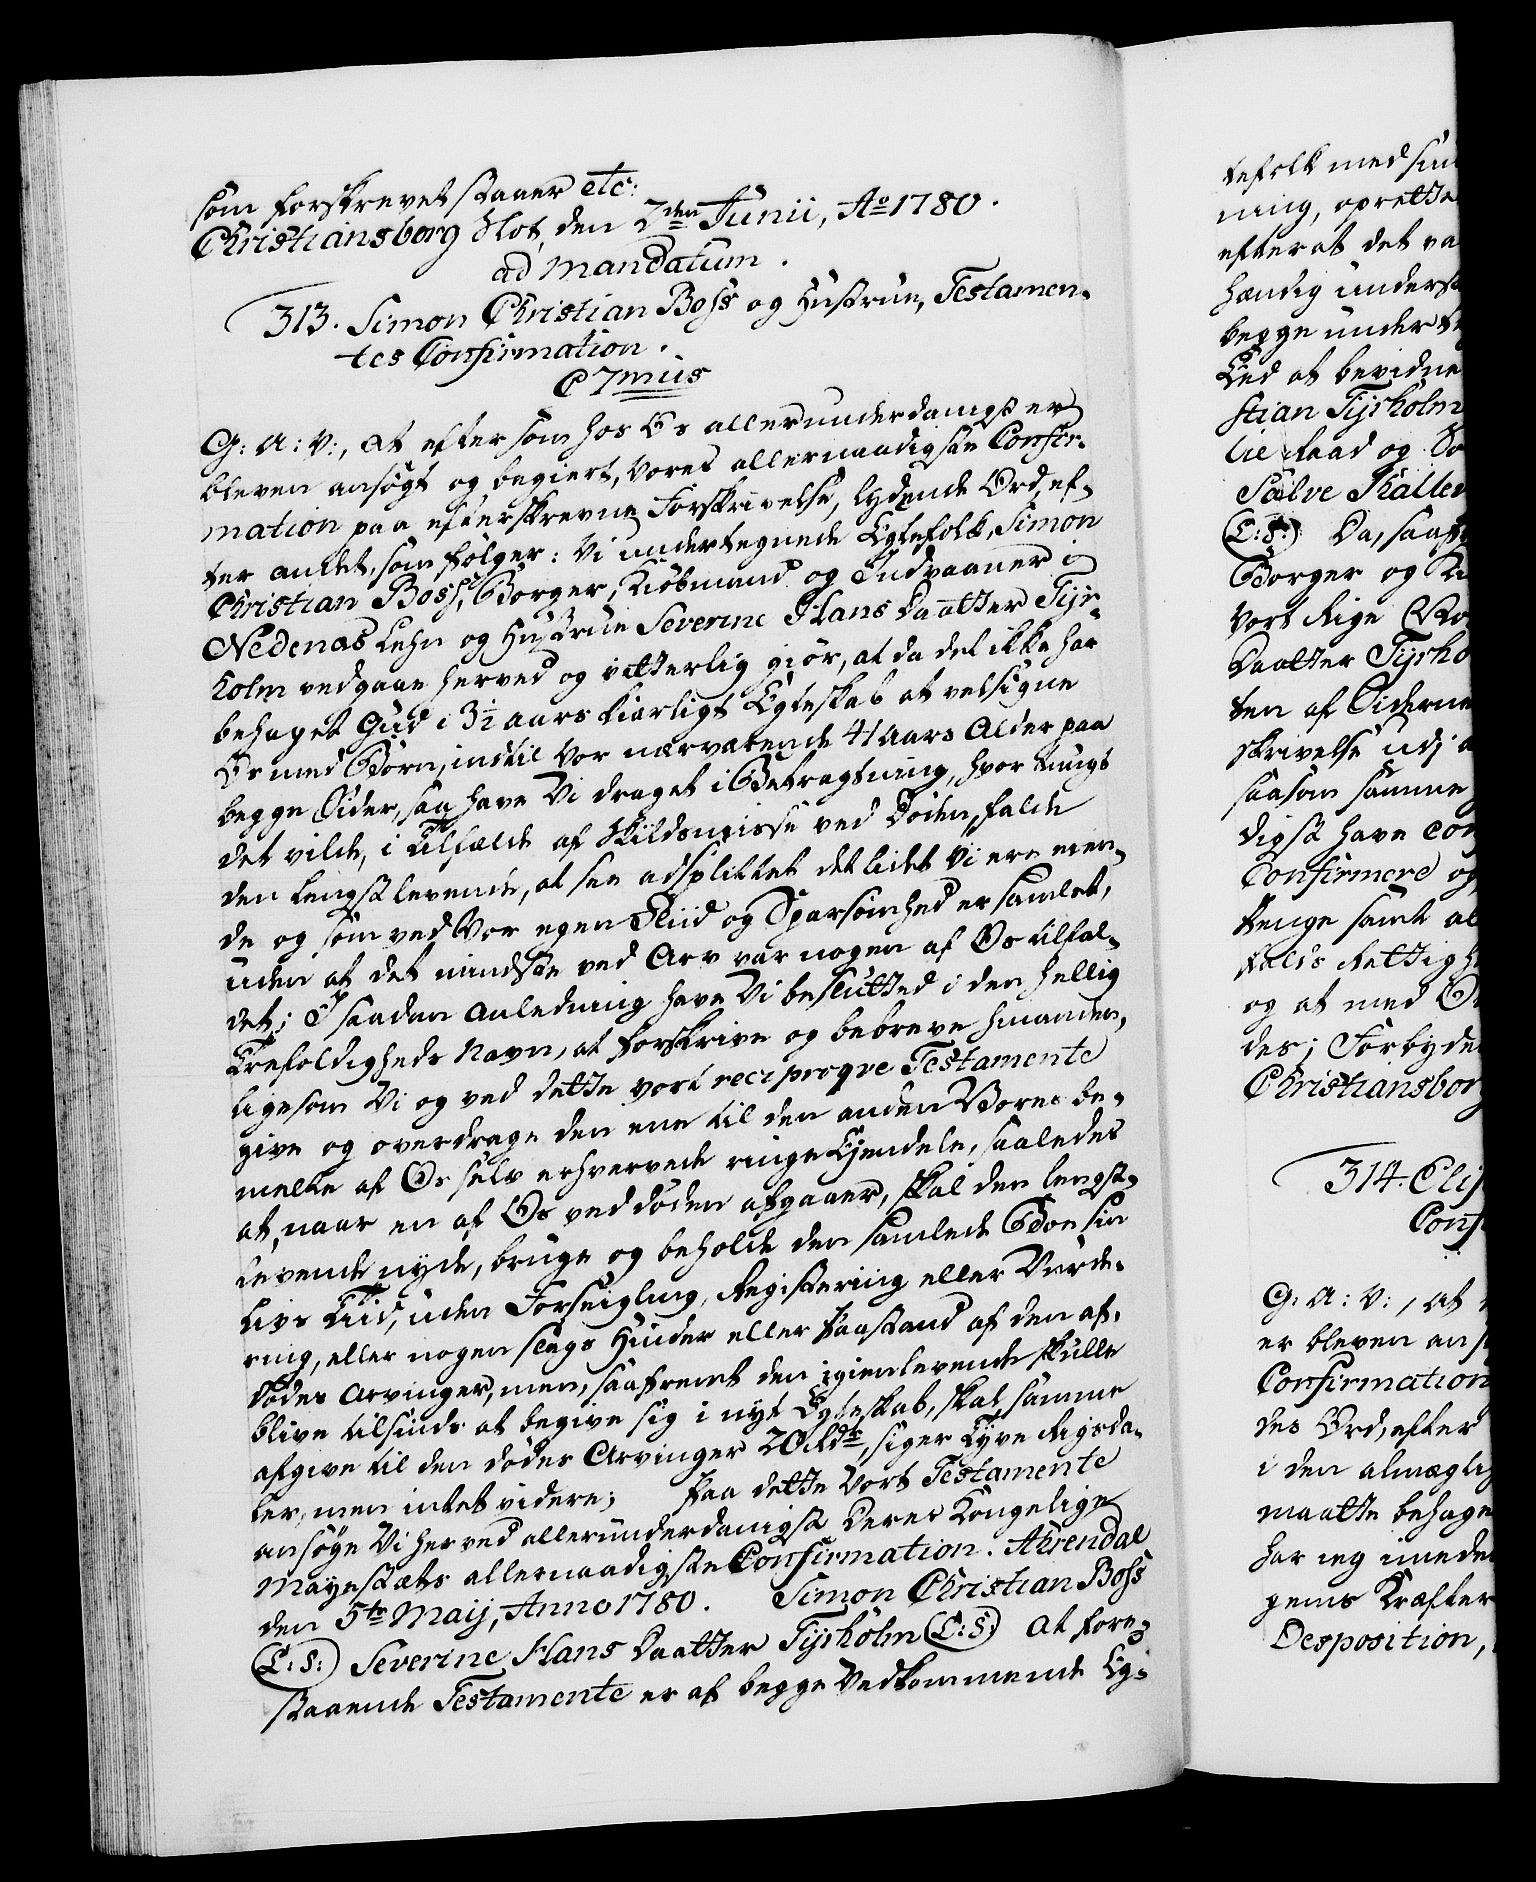 som forskrevet staaer etc:
Christiansborg Slot, den 2den Junii, Ao 1780.
ad mandatum.
313. Simon Christian Boss og Hustrue, Testamen-
tes Confirmation.
C7mus
G: A: V:, at eftersom hos Os allerunderdanigst er
bleven ansøgt og begiert, Vores allernaadigste Confir-
mation paa efterskrevne Forskrivelse, lydende Ord ef-
ter andet, som følger: Vi undertegnede Egtefolk, Simon
Christian Boss, Borger, Kiøbmand og Indvaaner i
Nedenæs Lehn og Hustrue Severine Hans Daatter Tyr-
holm vedgaae herved og vitterlig giør, at da det ikke har
behaget Gud i 3½ aars kiærligt Egteskab at velsigne
Os med Børn, indtil vor nærværende 41 Aars Alder paa
begge Sider, saa have Vi draget i Betragtning, hvor tungt
det vilde, i Tilfælde af Skildsmisse ved Døden, falde
den lengstlevende, at see adsplittet det lidet Vi ere eien-
de og som ved Vor egen Fliid og Sparsomhed er samlet,
uden at det mindste ved Arv var nogen af Os tilfal-
det; I saadan Anledning have Vi beslutted i den hellig
Trefoldigheds Navn, at forskrive og bebreve hinanden,
ligesom Vi og ved dette vort reciproqve Testamente
give og overdrage den ene til den anden Vores be-
melte af Os selv erhvervede ringe Eyendele, saaledes
at, naar en af Os ved døden afgaaer, skal den lengst-
levende nyde, bruge og beholde den samlede Boe sin
Livs Tiid, uden Forseigling, Registering eller Vurde-
ring, eller nogen slags Hinder eller Paastand af den af-
dødes Arvinger, men, saafremt den igienlevende skulle
blive tilsinds at begive sig i nyt Egteskab, skal samme
afgive til den dødes Arvinger 20 Rdr, siger Tyve Rigsda-
ler, men intet videre; Paa dette Vort Testamente
ansøge Vi herved allerunderdanigst Deres Kongelige
Mayestæts allernaadigste Confirmation. Ahrendal
den 5te Maij, Anno 1780. Simon Christian Boss
(L:S:) Severine Hans Daatter Tyrholm (L:S:) At fore-
staaende Testamente er af begge Vedkommende Eg-
tefolk med sin
ning, oprette
efterat det va
hændig underst
begge underte
Eed at bevidne
stian Tyrholm
lie Raad og So
Salve Kalle
(L:S:) Da, saaf
Borger og Ki
Vort Rige No
Daatter Tyrho
ten af Siderne
skrivelse udj a
saasom samme
digst have con
Confirmere og
tenge samt al
folks Rettigh
og at med O
des; Forbyde
Christiansborg
314. Elis
Conf
G: A: V:, at
er bleven ans
Confirmation
des Ord, efter
i den almægtig
maatte behage
har ieg imede
gems Kræfter
Desposition,